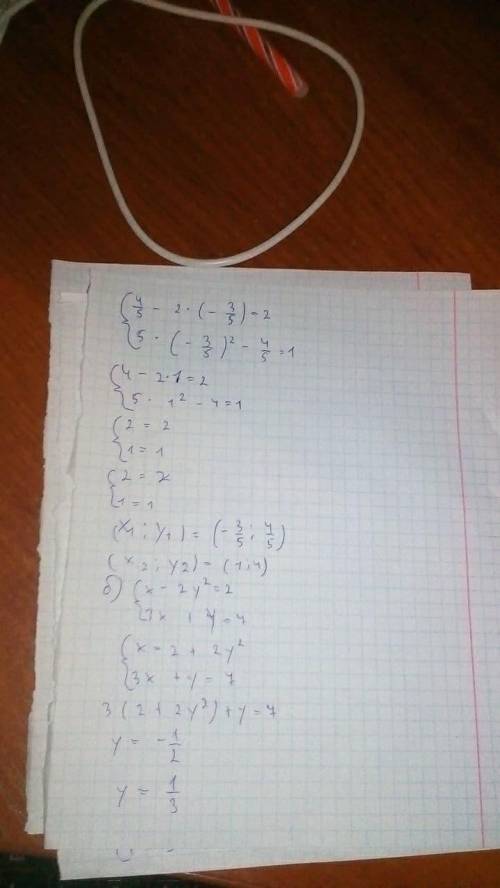 { 4/5 - 2 · (- 3/5) = 2
{ 5 · (- 3/5)² - 4/5 = 1
{ 4 - 2·1 = 2
{ 5 · 1² - 4 = 1
{ 2 = 2
{ 1 = 1
{ 2 = 2
{ 1 = 1
(x₁ ; y₁) = (- 3/5 ; 4/5)
(x₂ ; y₂) = (1 ; 4)
б) { x - 2y² = 2
{ 3x + y = 7
{ x = 2 + 2y²
{ 3x + y = 7
3 (2 + 2y²) + y = 7
y = - 1/2
y = 1/3